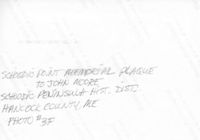 SCHOODIC POINT MEMORIAL PLAQUE
TO JOHN MOORE
SCHOODIC PENINSULA HIST. DIST.
HANCOCK COUNTY, ME
PHOTO #35